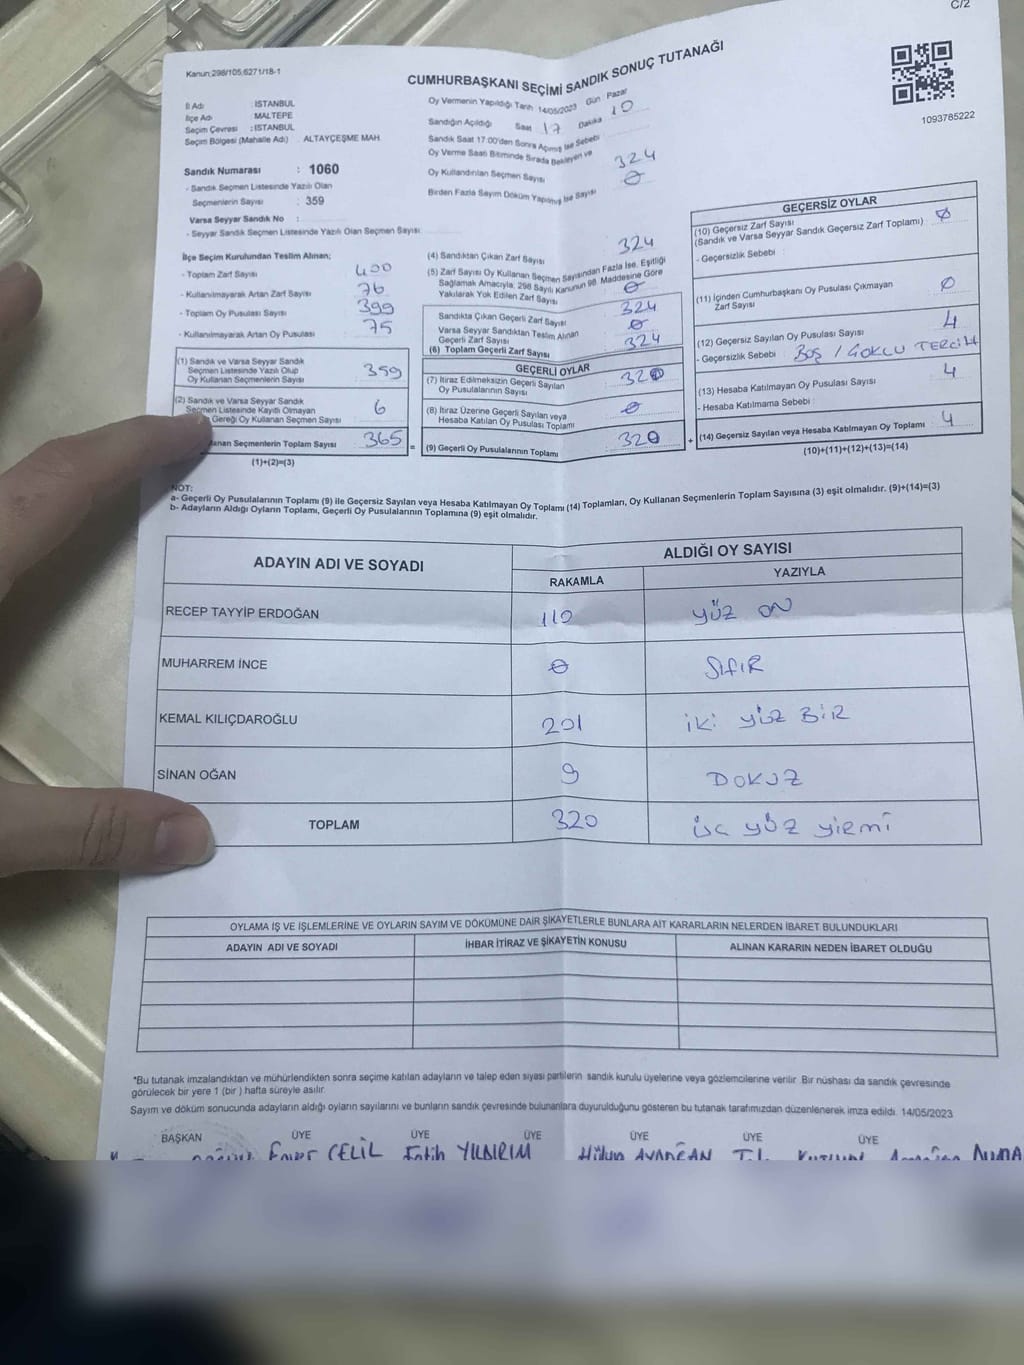 C/2
Kanun:298/105,6271/18-1
CUMHURBAŞKANI SEÇİMİ SANDIK SONUÇ TUTANAĞI
1093765222
İl Adı : İSTANBUL
İlçe Adı : MALTEPE
Seçim Çevresi : İSTANBUL
Seçim Bölgesi (Mahalle Adı) : ALTAYÇEŞME MAH.
Sandık Numarası : 1060
- Sandık Seçmen Listesinde Yazılı Olan
Seçmenlerin Sayısı : 359
Varsa Seyyar Sandık No :
- Seyyar Sandık Seçmen Listesinde Yazılı Olan Seçmen Sayısı:
Oy Vermenin Yapıldığı Tarih 14/05/2023 Gün Pazar
Sandığın Açıldığı Saat 17 Dakika 10
Sandık Saat 17:00'den Sonra Açılmış İse Sebebi
Oy Verme Saati Bitiminde Sırada Bekleyen ve
Oy Kullandırılan Seçmen Sayısı 324
Birden Fazla Sayım Döküm Yapılmış İse Sayısı 0
İlçe Seçim Kurulundan Teslim Alınan;
- Toplam Zarf Sayısı 400
- Kullanılmayarak Artan Zarf Sayısı 76
- Toplam Oy Pusulası Sayısı 399
- Kullanılmayarak Artan Oy Pusulası 75
(1) Sandık ve Varsa Seyyar Sandık
Seçmen Listesinde Yazılı Olup
Oy Kullanan Seçmenlerin Sayısı 359
(2) Sandık ve Varsa Seyyar Sandık
Seçmen Listesinde Kayıtlı Olmayan
Gereği Oy Kullanan Seçmen Sayısı 6
Seçmenlerin Toplam Sayısı 365 =
(1)+(2)=(3)
(4) Sandıktan Çıkan Zarf Sayısı 324
(5) Zarf Sayısı Oy Kullanan Seçmen Sayısından Fazla İse, Eşitliği
Sağlamak Amacıyla, 298 Sayılı Kanunun 98. Maddesine Göre
Yakılarak Yok Edilen Zarf Sayısı 0
Sandıkta Çıkan Geçerli Zarf Sayısı 324
Varsa Seyyar Sandıktan Teslim Alınan
Geçerli Zarf Sayısı 0
(6) Toplam Geçerli Zarf Sayısı 324
GEÇERLİ OYLAR
(7) İtiraz Edilmeksizin Geçerli Sayılan
Oy Pusulalarının Sayısı 320
(8) İtiraz Üzerine Geçerli Sayılan veya
Hesaba Katılan Oy Pusulası Toplamı 0
(9) Geçerli Oy Pusulalarının Toplamı 320 +
GEÇERSİZ OYLAR
(10) Geçersiz Zarf Sayısı
(Sandık ve Varsa Seyyar Sandık Geçersiz Zarf Toplamı) 0
- Geçersizlik Sebebi :
(11) İçinden Cumhurbaşkanı Oy Pusulası Çıkmayan
Zarf Sayısı 0
(12) Geçersiz Sayılan Oy Pusulası Sayısı 4
- Geçersizlik Sebebi : BOŞ / ÇOKLU TERCİH
(13) Hesaba Katılmayan Oy Pusulası Sayısı 4
- Hesaba Katılmama Sebebi :
(14) Geçersiz Sayılan veya Hesaba Katılmayan Oy Toplamı : 4
(10)+(11)+(12)+(13)=(14)
NOT:
a- Geçerli Oy Pusulalarının Toplamı (9) ile Geçersiz Sayılan veya Hesaba Katılmayan Oy Toplamı (14) Toplamları, Oy Kullanan Seçmenlerin Toplam Sayısına (3) eşit olmalıdır. (9)+(14)=(3)
b- Adayların Aldığı Oyların Toplamı, Geçerli Oy Pusulalarının Toplamına (9) eşit olmalıdır.
ADAYIN ADI VE SOYADI ALDIĞI OY SAYISI
RAKAMLA YAZIYLA
RECEP TAYYİP ERDOĞAN 110 YÜZ ON
MUHARREM İNCE 0 SIFIR
KEMAL KILIÇDAROĞLU 201 iki yüz BİR
SİNAN OĞAN 9 DOKUZ
TOPLAM 320 üç yüz yirmi
OYLAMA İŞ VE İŞLEMLERİNE VE OYLARIN SAYIM VE DÖKÜMÜNE DAİR ŞİKAYETLERLE BUNLARA AİT KARARLARIN NELERDEN İBARET BULUNDUKLARI
ADAYIN ADI VE SOYADI İHBAR İTİRAZ VE ŞİKAYETİN KONUSU ALINAN KARARIN NEDEN İBARET OLDUĞU
*Bu tutanak imzalandıktan ve mühürlendikten sonra seçime katılan adayların ve talep eden siyasi partilerin sandık kurulu üyelerine veya gözlemcilerine verilir. Bir nüshası da sandık çevresinde
görülecek bir yere 1 (bir) hafta süreyle asılır.
Sayım ve döküm sonucunda adayların aldığı oyların sayılarını ve bunların sandık çevresinde bulunanlara duyurulduğunu gösteren bu tutanak tarafımızdan düzenlenerek imza edildi. 14/05/2023
BAŞKAN ÜYE ÜYE ÜYE ÜYE ÜYE ÜYE
CELİL Fatih YILDIRIM